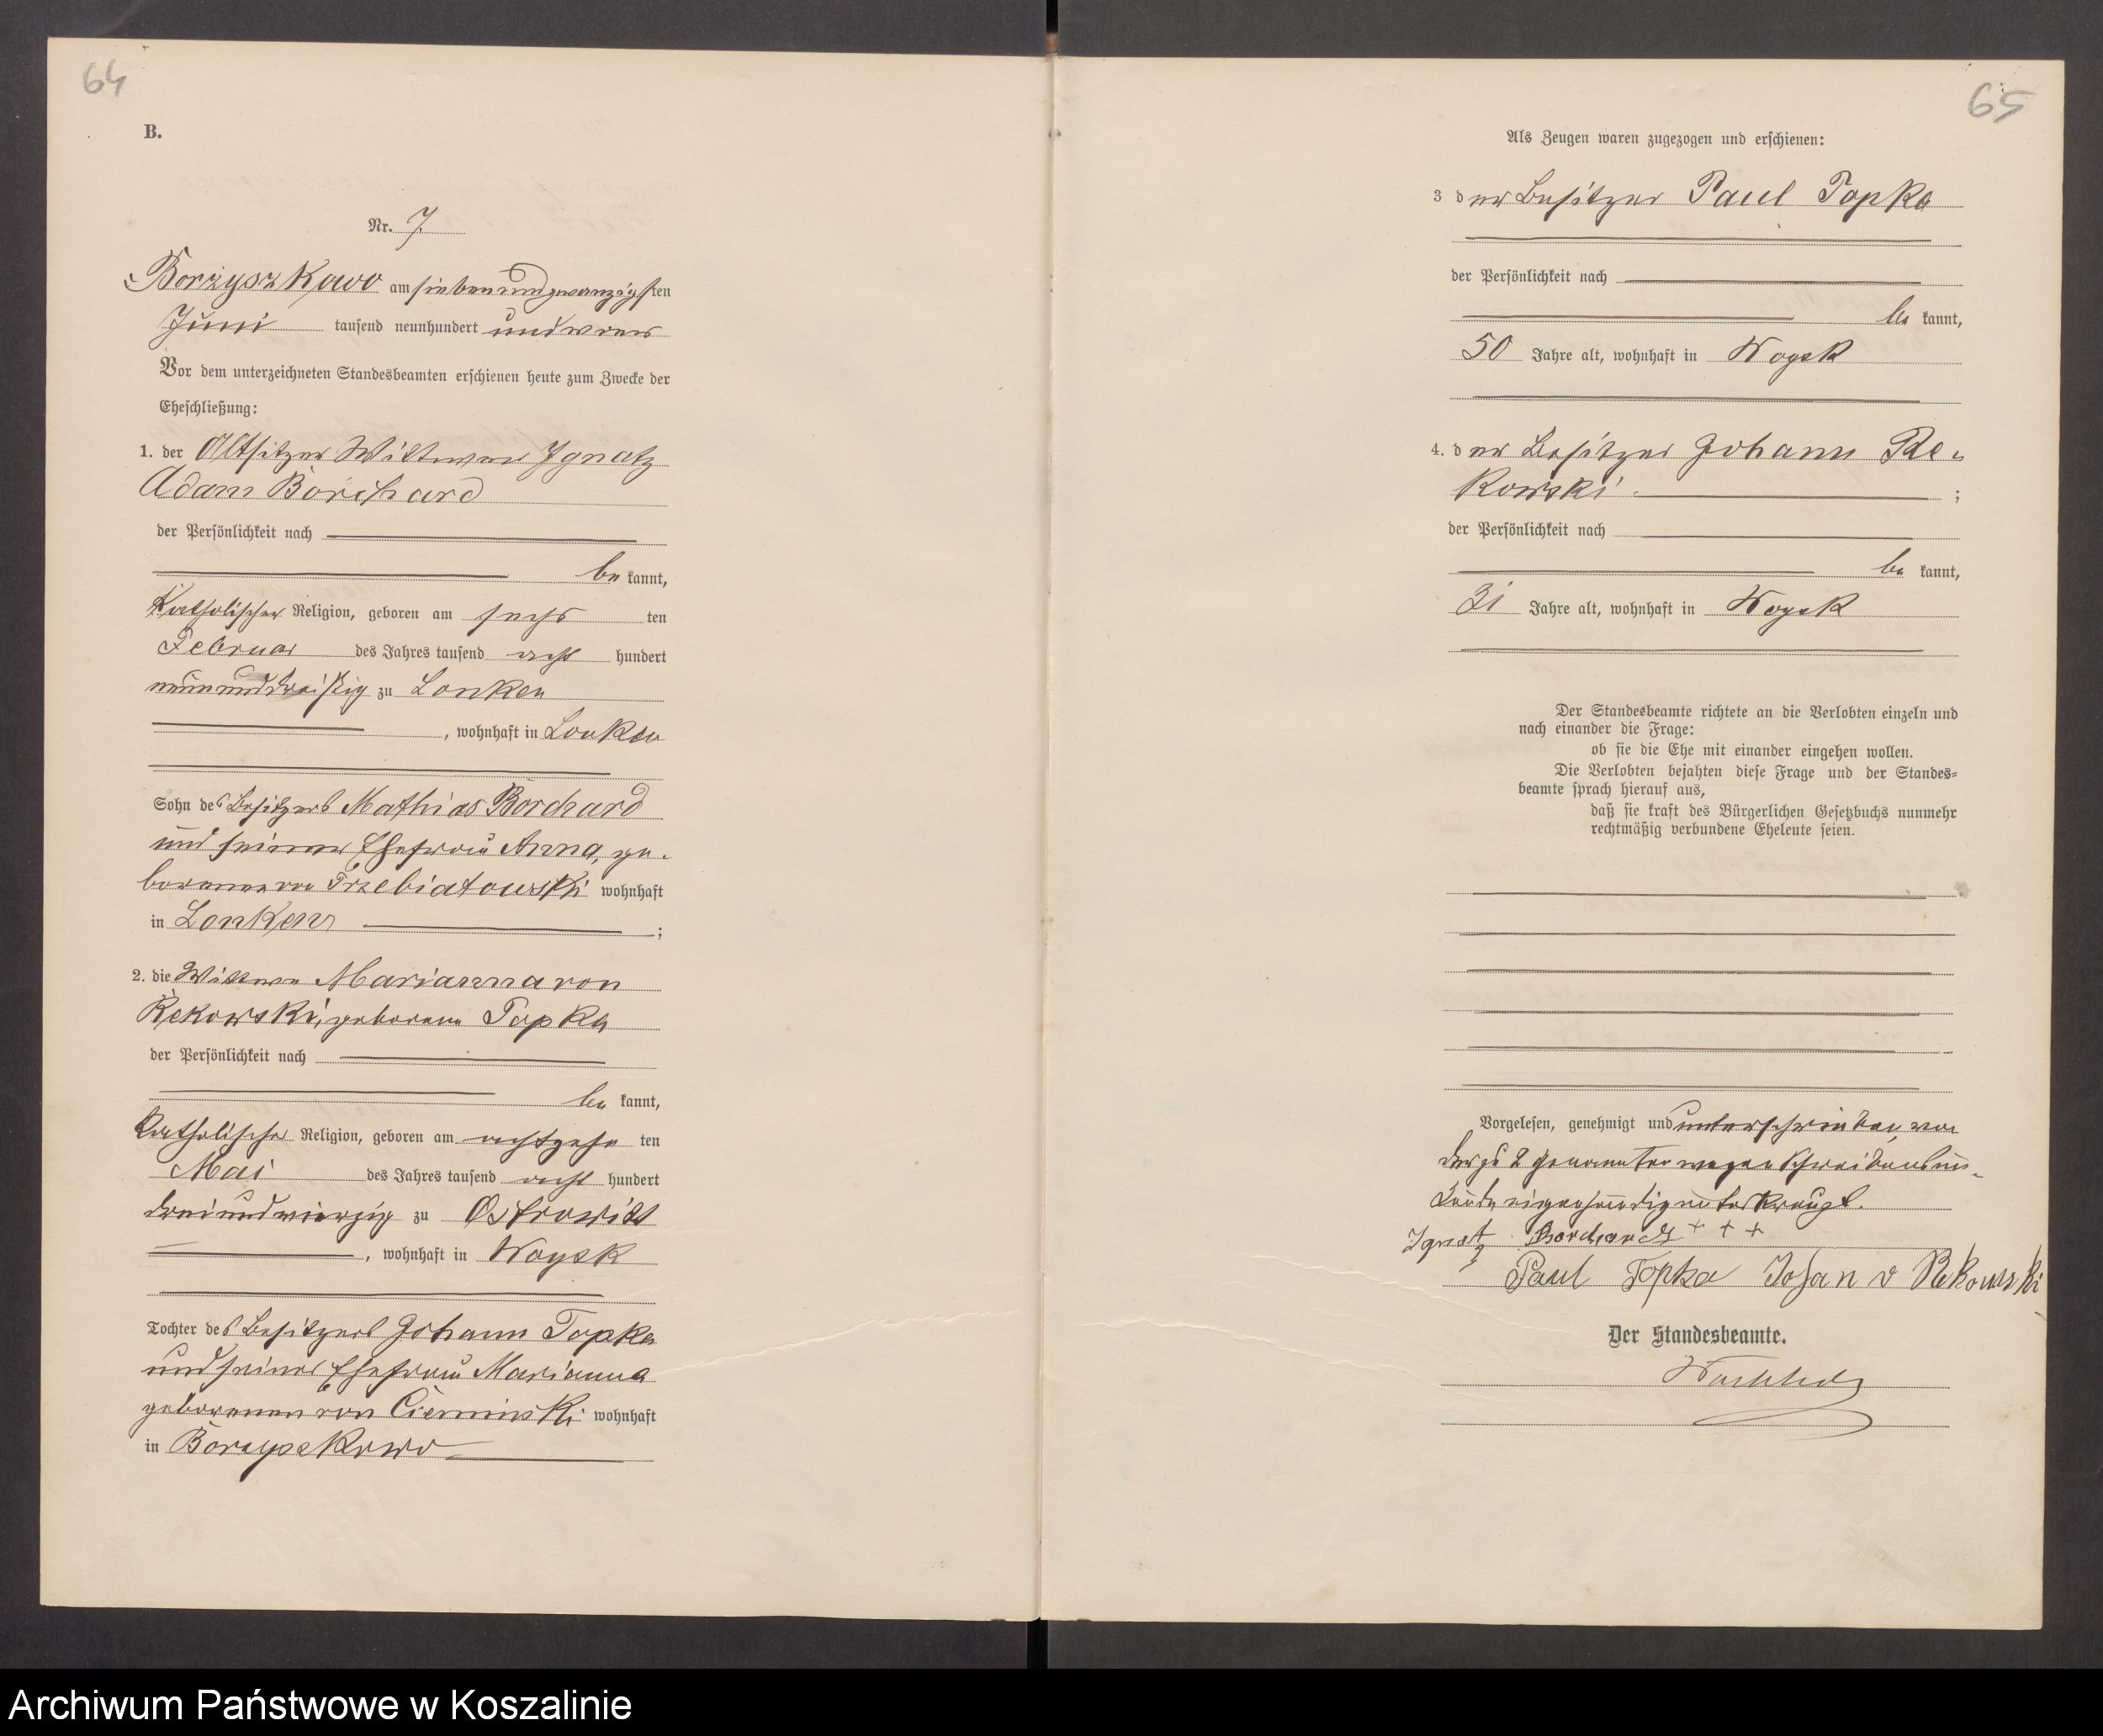 64
B.
Nr. 7
Borzyszkowo am siebenundzwanzigsten
Juni tausend neunhundert und
Vor dem unterzeichneten Standesbeamten erschienen heute zum Zwecke der
Eheschließung:
1. der Altsitzer Wittwer Ignatz
Adam Borchard
der Persönlichkeit nach
be kannt,
Katholischer Religion, geboren am sechs ten
Februar des Jahres tausend acht hundert
neununddreißig zu Lonken
, wohnhaft in Lonken
Sohn des Besitzers Mathias Borchard
und seiner Ehefrau Anna, ge-
borenen von Trzebiatowski wohnhaft
in Lonken ;
2. die Wittwe Marianna von
Rekowski, geborene Topka
der Persönlichkeit nach
be kannt,
Katholischer Religion, geboren am achtzehn ten
Mai des Jahres tausend acht hundert
dreiundvierzig zu Ostrowitt
, wohnhaft in Woysk
Tochter des Besitzers Johann Topka
und seiner Ehefrau Marianna
geborenen von Cieminski wohnhaft
in Borzyszkowo
65
Als Zeugen waren zugezogen und erschienen:
3 der Besitzer Paul Topka
der Persönlichkeit nach
be kannt,
50 Jahre alt, wohnhaft in Woysk
4. der Besitzer Johann Re-
kowski ;
der Persönlichkeit nach
be kannt,
31 Jahre alt, wohnhaft in Woysk
Der Standesbeamte richtete an die Verlobten einzeln und
nach einander die Frage:
ob sie die Ehe mit einander eingehen wollen.
Die Verlobten bejahten diese Frage und der Standes=
beamte sprach hierauf aus,
daß sie kraft des Bürgerlichen Gesetzbuchs nunmehr
rechtmäßig verbundene Eheleute seien.
Vorgelesen, genehmigt und unterschrieben, von
der zu 2 Genannten wegen Schreibensun-
kunde eigenhändig unterkreuzt.
Ignatz Borchard + + +
Paul Topka Johan v Rekowski
Der Standesbeamte.
Archiwum Państwowe w Koszalinie